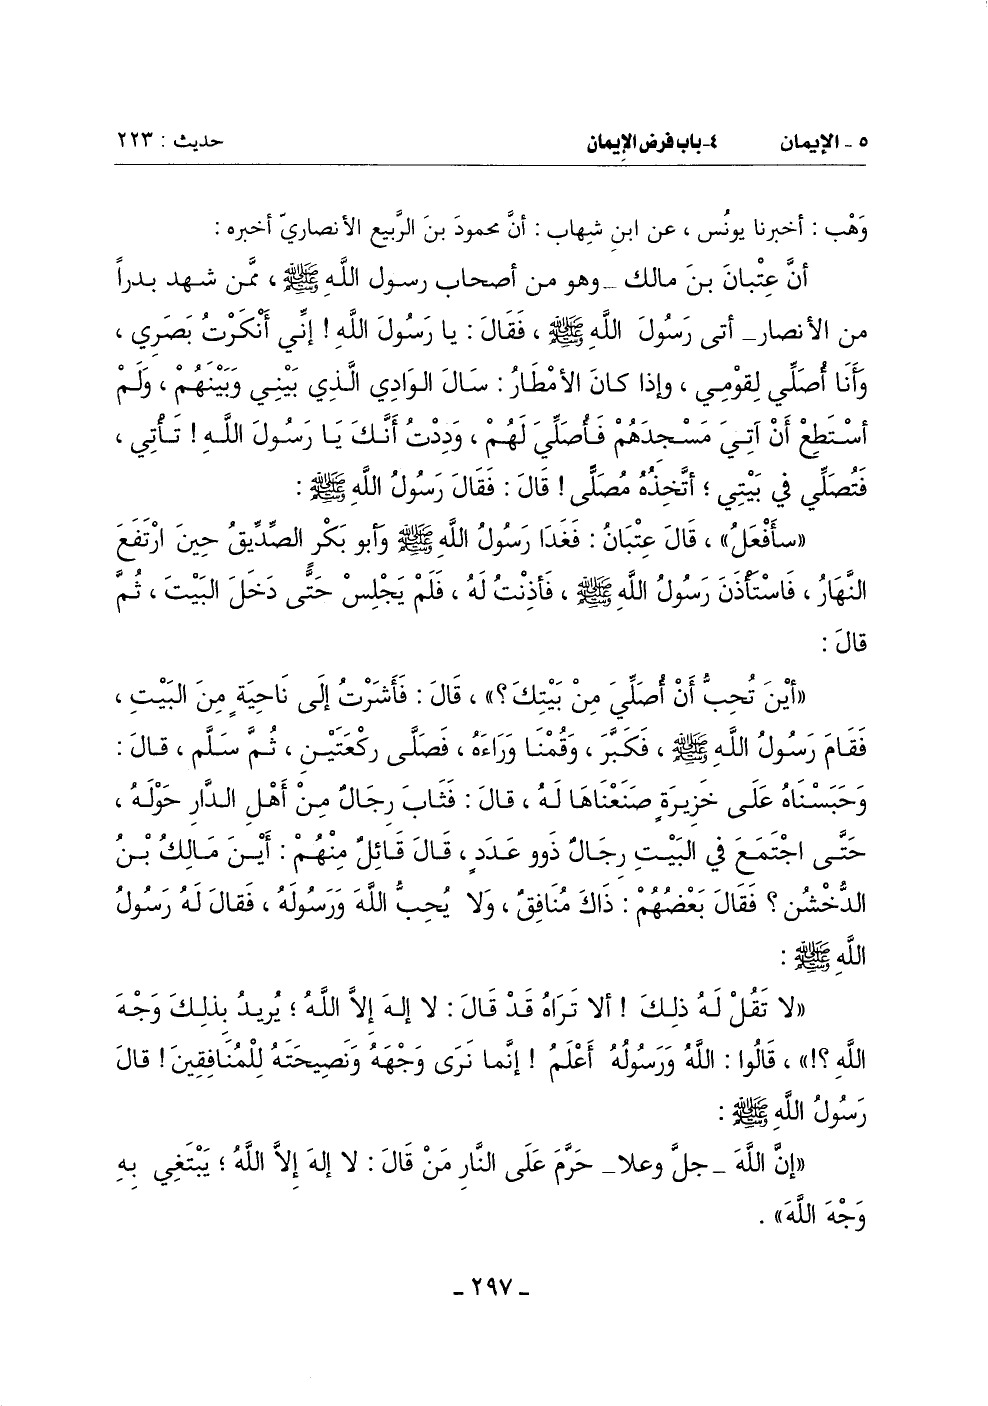 ٥ - الإيمان ٤-باب فرض الإيمان حديث : ٢٢٣
وَهْب : أخبرنا يونُس ، عن ابنِ شِهاب : أنَّ محمودَ بنَ الرَّبيع الأنصاريّ أخبره :
أنَّ عِتْبانَ بنَ مالك _وهو من أصحاب رسول اللَّهِ ﷺ ، ممَّن شهد بدراً
من الأنصار_ أتى رَسُولَ اللَّهِ ﷺ ، فَقَالَ : يا رَسُولَ اللَّهِ ! إنِّي أَنْكَرْتُ بَصَرِي ،
وَأَنَا أُصَلِّي لِقَوْمِي ، وإذا كانَ الأمْطَارُ : سَالَ الوَادِي الَّذِي بَيْنِي وَبَيْنَهُمْ ، وَلَمْ
أسْتَطِعْ أَنْ آتِيَ مَسْجِدَهُمْ فَأُصَلِّيَ لَهُمْ ، وَدِدْتُ أَنَّكَ يَا رَسُولَ اللَّهِ ! تَأْتِي ،
فَتُصَلِّي فِي بَيْتِي ؛ أتَّخِذُهُ مُصَلًّى ! قَالَ : فَقَالَ رَسُولُ اللَّهِ ﷺ :
«سأَفْعَلُ» ، قَالَ عِتْبَانُ : فَغَدَا رَسُولُ اللَّهِ ﷺ وَأبو بَكْرٍ الصِّدِّيقُ حِينَ ارْتَفَعَ
النَّهَارُ ، فَاسْتَأْذَنَ رَسُولُ اللَّهِ ﷺ ، فَأَذِنْتُ لَهُ ، فَلَمْ يَجْلِسْ حَتَّى دَخَلَ البَيْتَ ، ثُمَّ
قالَ :
«أيْنَ تُحِبُّ أَنْ أُصَلِّيَ مِنْ بَيْتِكَ ؟» ، قَالَ : فَأَشَرْتُ إلَى نَاحِيَةٍ مِنَ البَيْتِ ،
فَقَامَ رَسُولُ اللَّهِ ﷺ ، فَكَبَّرَ ، وَقُمْنَا وَرَاءَهُ ، فَصَلَّى ركْعَتَيْنِ ، ثُمَّ سَلَّم ، قالَ :
وَحَبَسْنَاهُ عَلَى خَزِيرَةٍ صَنَعْنَاهَا لَهُ ، قالَ : فَثَابَ رِجَالٌ مِنْ أَهْلِ الدَّارِ حَوْلَهُ ،
حَتَّى اجْتَمَعَ فِي البَيْتِ رِجَالٌ ذَوو عَدَدٍ ، قَالَ قَائِلٌ مِنْهُمْ : أَيْنَ مَالِكُ بْنُ
الدُّخْشُنِ ؟ فَقَالَ بَعْضُهُمْ : ذَاكَ مُنَافِقٌ ، وَلا يُحِبُّ اللَّهَ وَرَسُولَهُ ، فَقالَ لَهُ رَسُولُ
اللَّهِ ﷺ :
«لا تَقُلْ لَهُ ذلِكَ ! ألا تَرَاهُ قَدْ قَالَ : لا إلهَ إلاَّ اللَّهُ ؛ يُرِيدُ بِذلِكَ وَجْهَ
اللَّهِ ؟!» ، قَالُوا : اللَّهُ وَرَسُولُهُ أَعْلَمُ ! إنَّما نَرَى وَجْهَهُ وَنَصِيحَتَهُ لِلْمُنَافِقِينَ ! قالَ
رَسُولُ اللَّهِ ﷺ :
«إنَّ اللَّهَ _جلَّ وعلا_ حَرَّمَ عَلَى النَّارِ مَنْ قَالَ : لا إلهَ إلاَّ اللَّهُ ؛ يَبْتَغِي بِهِ
وَجْهَ اللَّهَ» .
- ٢٩٧ -